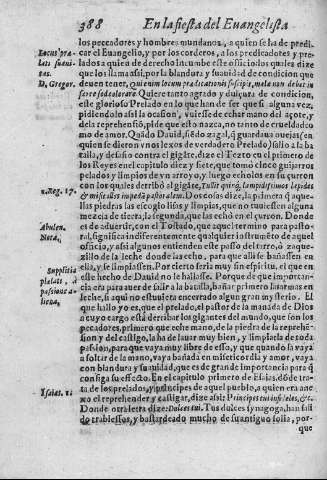 388 En la fiesta del Euangelista
los peccadores y hombres mundanos, a quien se ha de predi-
car el Euangelio, y por los corderos, a los predicadores y pre-
lados a quien de derecho incumbe este officio los quales dize
que los llama assi, por la blandura y suauidad de condicion que
deuen tener, Qui enim locum prædicationis suscipit, mala non debet in
ferre sed tolerare. Quiere tanto agrado y dulçura de condicion,
este glorioso Prelado en lo que han de ser que si alguna vez,
pidiendola assi la ocasion, vuiesse de echar mano del açote, y
dela reprehension, pide que esto nazca, no tanto de crueldad co
mo de amor. Quãdo Dauid, siẽdo zagal, q̃ guardaua ouejas (en
quien se dieron vnos lexos de verdadero Prelado) salio a la ba
talla, y desafio contra el gigãte, dize el Texto en el primero de
los Reyes en el capitulo diez y siete, que tomo cinco guijarros
pelados y limpios de vn arroyo, y luego echolos en su çurron
con los quales derribò al gigãte, Tulit quinq; limpidissimos lapides
& misit illos in peram pastoralem. Dos cosas dize, la primera q̃ aque-
llas piedras las escogio lisas y limpias, que no tuuiessen alguna
mezcla de tierra; la segunda, que las echò en el çurron. Donde
es de aduertir, con el Tostado, que aquel termino para pasto
ral, significa indifferentemente qualquier instrumẽto de aquel
officio, y assi algunos entienden este passo del tarro, ò zaque-
zillo de la leche donde las echo, para que alli se bañassen en
ella, y se limpiassen. Por cierto seria muy sin espiritu, el que en
este hecho de Dauid no le hallasse. Porque de que importan-
cia era para auer de salir a la batalla, bañar primero las armas en
leche, si aqui no estuuiera encerrado algun gran mysterio. El
que hallo yo es, que el prelado, el pastor de la manada de Dios
a cuyo cargo està derribar los gigantes del mundo, que son los
peccadores, primero que eche mano, de la piedra de la reprehẽ-
sion y del castigo, la ha de lauar muy bien, y limpiarla de toda
passion, para que vaya muy libre de esso, y que quando la vaya
a soltar de la mano, vaya bañada en misericordia y amor, vaya
con blandura y suauidad, que es de grande importancia para q̃
consiga su effecto. En el capitulo primero de Esaias, dõde tra-
ta de los prelados, y principes de aquel pueblo, a quien era ane
xo el reprehender y castigar, dize assi: Principes tui infideles, &c.
Donde otra letra dize: Dulces tui. Tus dulces synagoga, han sali
do treblessos, y bastardeado mucho de su antiguo solia, por-
que
Locus præ-
lati suaui-
tas.
D. Gregor.
1. Reg. 17.
Abulen.
Nota.
Isaias. 1.